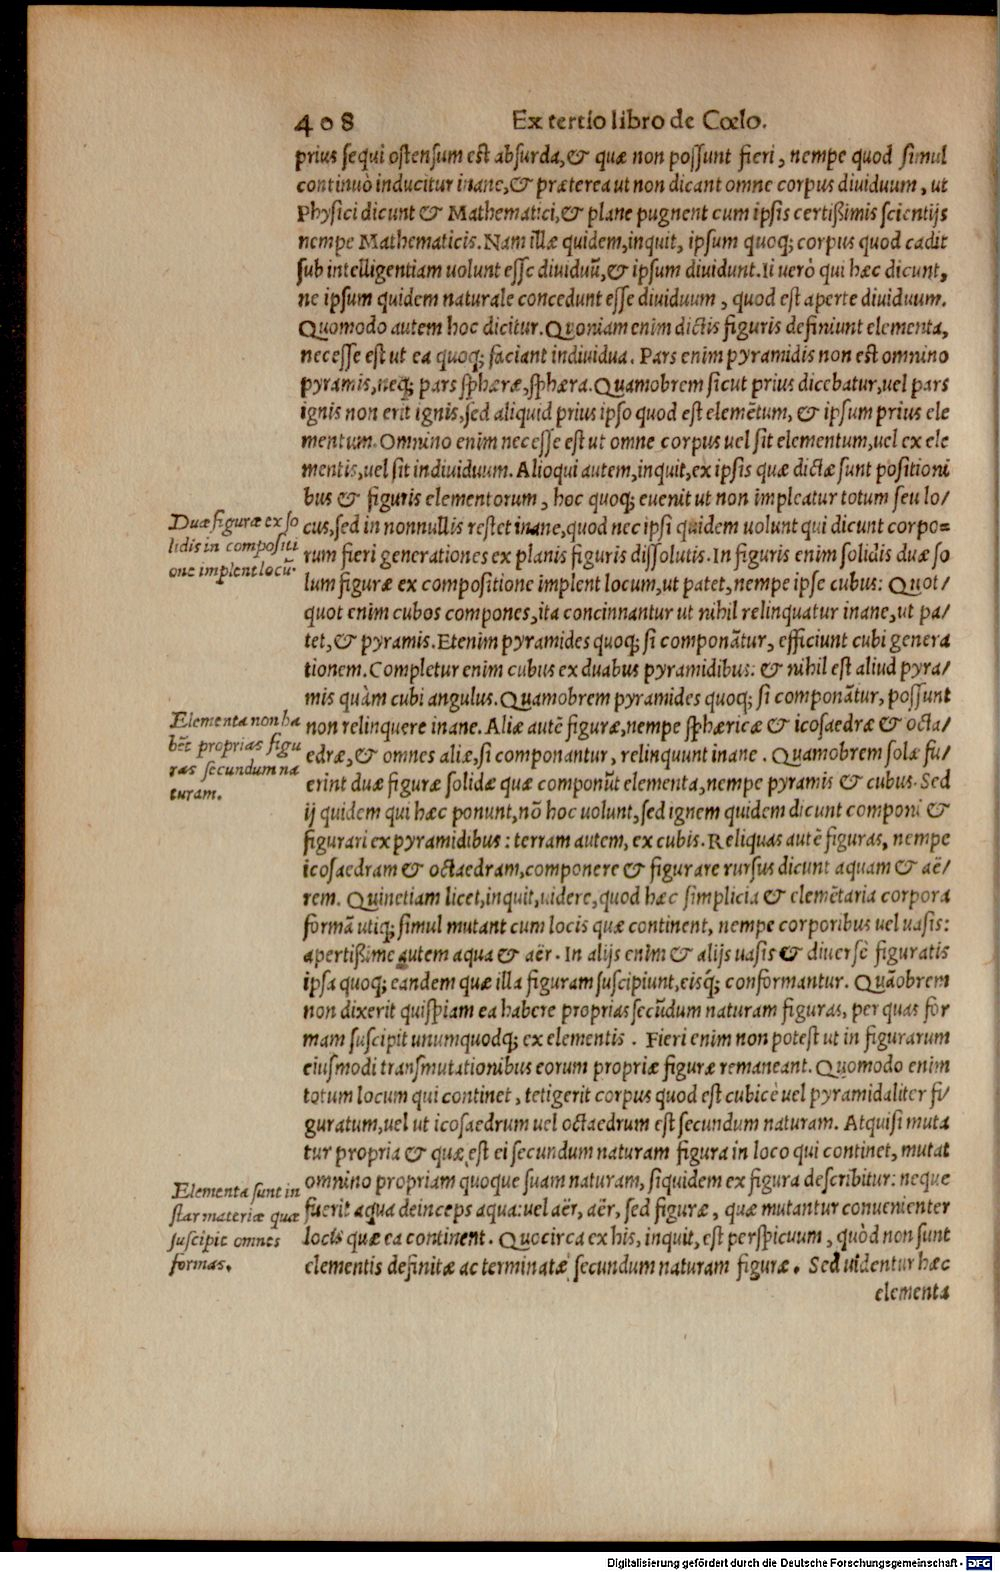 408 Ex tertio libro de Cœlo.
prius sequi ostensum est absurda, & quæ non possunt fieri, nempe quod simul
continuò inducitur inane, & præterea ut non dicant omne corpus dividuum, ut
Physici dicunt & Mathematici, & plane pugnent cum ipsis certißimis scientijs
nempe Mathematicis. Nam illæ quidem, inquit, ipsum quoq; corpus quod cadit
sub intelligentiam uolunt esse diuiduũ, & ipsum diuidunt. Ii uerò qui hæc dicunt,
ne ipsum quidem naturale concedunt esse diuiduum, quod est aperte diuiduum.
Quomodo autem hoc dicitur. Quoniam enim dictis figuris definiunt elementa,
necesse est ut ea quoq; faciant indiuidua. Pars enim pyramidis non est omnino
pyramis, neq; pars sphæræ, sphæra. Quamobrem sicut prius dicebatur, uel pars
ignis non erit ignis, sed aliquid prius ipso quod est elemẽtum, & ipsum prius ele
mentum. Omnino enim necesse est ut omne corpus uel sit elementum, uel ex ele
mentis, uel sit indiuiduum. Alioqui autem, inquit, ex ipsis quæ dictæ sunt positioni
bus & figuris elementorum, hoc quoq; euenit ut non impleatur totum seu lo/
Duæ figuræ ex so
lidis in compositi
one implent locũ.
cus, sed in nonnullis restet inane, quod nec ipsi quidem uolunt qui dicunt corpo=
rum fieri generationes ex planis figuris dissolutis. In figuris enim solidis duæ so
lum figuræ ex compositione implent locum, ut patet, nempe ipse cubus: Quot/
quot enim cubos compones, ita concinnantur ut nihil relinquatur inane, ut pa/
tet, & pyramis. Etenim pyramides quoq; si componãtur, efficiunt cubi genera
tionem. Completur enim cubus ex duabus pyramidibus: & nihil est aliud pyra/
mis quàm cubi angulus. Quamobrem pyramides quoq; si componãtur, possunt
Elementa non ha
bẽt proprias figu
ras secundum na
turam.
non relinquere inane. Aliæ autẽ figuræ, nempe sphæricæ & icosaedræ & octa/
edræ, & omnes aliæ, si componantur, relinquunt inane. Quamobrem solæ fu/
erint duæ figuræ solidæ quæ componũt elementa, nempe pyramis & cubus. Sed
ij quidem qui hæc ponunt, nõ hoc uolunt, sed ignem quidem dicunt componi &
figurari ex pyramidibus: terram autem, ex cubis. Reliquas autẽ figuras, nempe
icosaedram & octaedram, componere & figurare rursus dicunt aquam & aë/
rem. Quinetiam licet, inquit, uidere, quod hæc simplicia & elemẽtaria corpora
formã utiq; simul mutant cum locis quæ continent, nempe corporibus uel uasis:
apertißime autem aqua & aër. In alijs enim & alijs uasis & diuersè figuratis
ipsa quoq; eandem quæ illa figuram suscipiunt, eisq́; conformantur. Quãobrem
non dixerit quispiam ea habere proprias secũdum naturam figuras, per quas for
mam suscipit unumquodq; ex elementis. Fieri enim non potest ut in figurarum
eiusmodi transmutationibus eorum propriæ figuræ remaneant. Quomodo enim
totum locum qui continet, tetigerit corpus quod est cubicè uel pyramidaliter fi/
guratum, uel ut icosaedrum uel octaedrum est secundum naturam. Atqui si muta
tur propria & quæ est ei secundum naturam figura in loco qui continet, mutat
Elementa sunt in
star materiæ quæ
suscipit omnes
formas.
omnino propriam quoque suam naturam, siquidem ex figura describitur: neque
fuerit aqua deinceps aqua: uel aër, aër, sed figuræ, quæ mutantur conuenienter
locis quæ ea continent. Quocirca ex his, inquit, est perspicuum, quòd non sunt
elementis definitæ ac terminatæ secundum naturam figuræ. Sed uidentur hæc
elementa
Digitalisierung gefördert durch die Deutsche Forschungsgemeinschaft - DFG